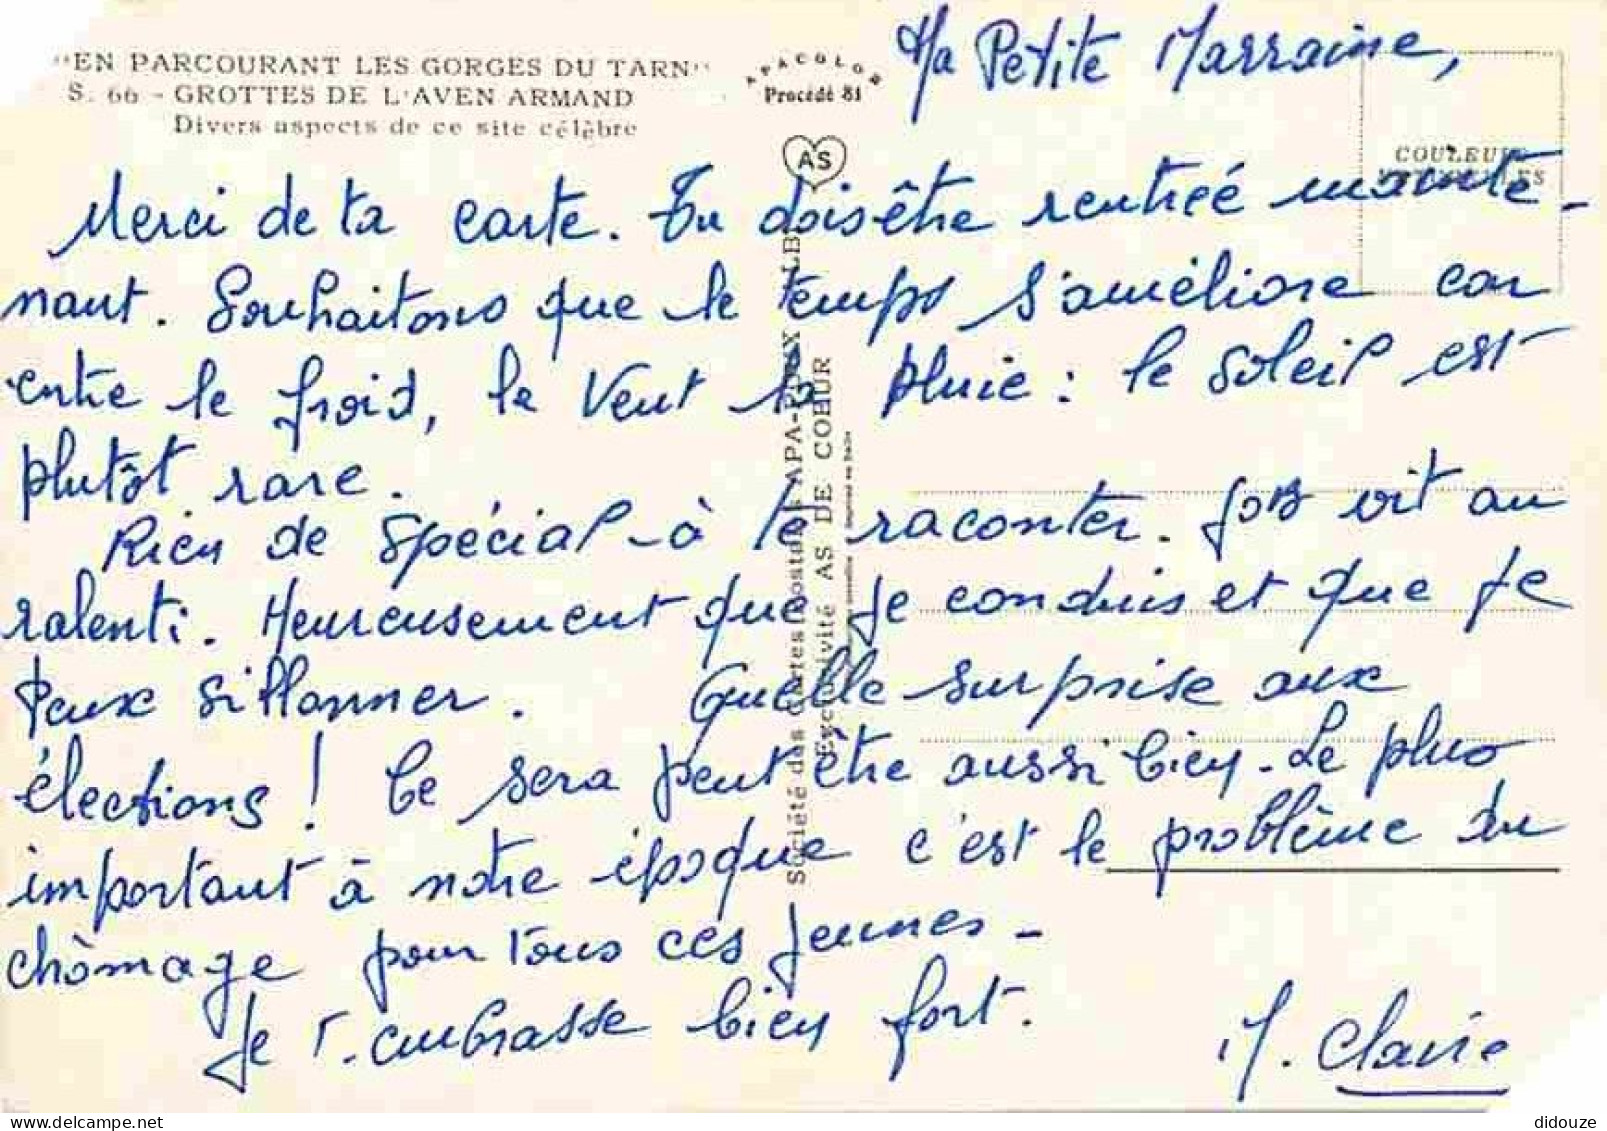 "EN PARCOURANT LES GORGES DU TARN"
S. 66 - GROTTES DE L'AVEN ARMAND
Divers aspects de ce site célèbre
APACOLOR
Procédé 81
AS
COULEURS
Société des Cartes Postales APA-POUX
Exclusivité AS DE COEUR
Ma Petite Marraine,
Merci de ta carte. Tu dois être rentrée mainte-
nant. Souhaitons que le temps s'améliore car
entre le froid, le Vent la pluie : le soleil est
plutôt rare.
Rien de spécial - à te raconter. Job vit au
ralenti. Heureusement que je conduis et que je
peux sillonner. Quelle surprise aux
élections ! Ce sera peut être aussi bien. Le plus
important à notre époque c'est le problème du
chômage pour tous ces jeunes -
Je t'embrasse bien fort.
M. Clavie
didouze